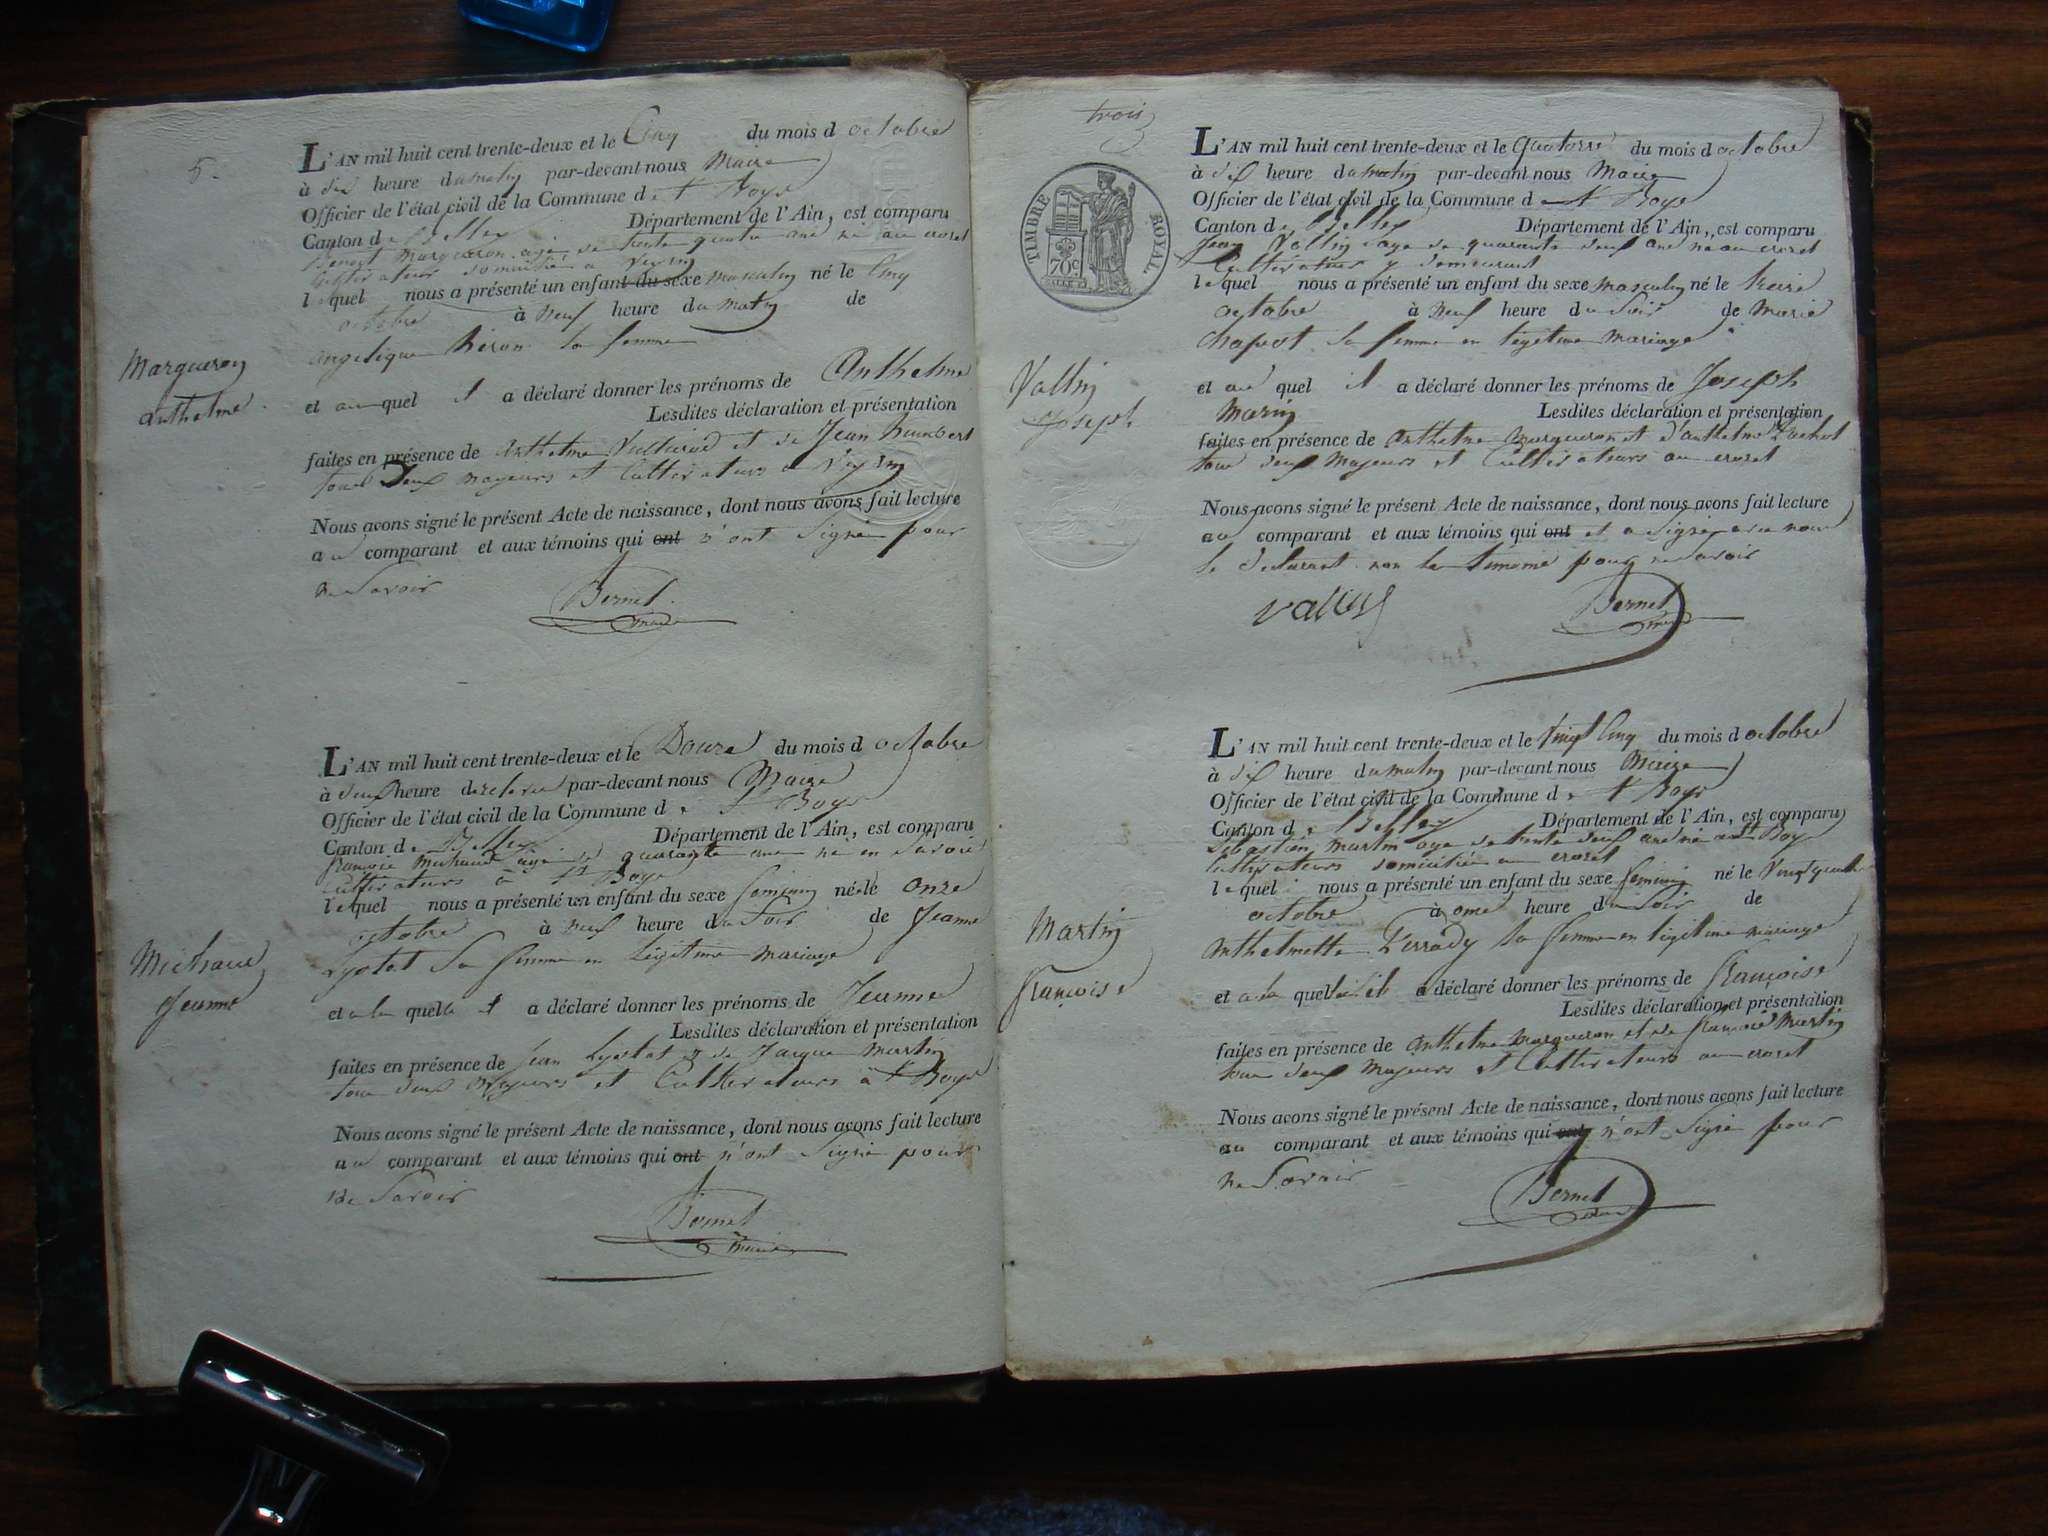 5.
L'AN mil huit cent trente-deux et le Cinq du mois d octobre
à dix heure du matin par-devant nous Maire
Officier de l'état civil de la Commune d e St Boys
Canton d e Belley Département de l'Ain, est comparu
Benoit Margueron agé de trente quatre ans né au crozet
Cultivateur domicilié à Veyrin
l e quel nous a présenté un enfant du sexe masculin né le Cinq
octobre à neuf heure du matin de
angelique sa femme
Margueron
anthelme
et au quel il a déclaré donner les prénoms de Anthelme
Lesdites déclaration et présentation
faites en présence de Anthelme et de Jean humbert
tous deux majeurs et Cultivateurs a Veyrin
Nous avons signé le présent Acte de naissance, dont nous avons fait lecture
au comparant et aux témoins qui ont n'ont Signé pour
ne Savoir
Bernet
maire
L'AN mil huit cent trente-deux et le Douze du mois d octobre
à deux heure par-devant nous Maire
Officier de l'état civil de la Commune d e St Boys
Canton d e Belley Département de l'Ain, est comparu
françois Michaud agé de quarante ans né en Savoie
Cultivateurs à St Boys
l e quel nous a présenté un enfant du sexe feminin né le onze
octobre à neuf heure du Soir de Jeanne
Lyotat Sa femme en Légitime mariage
Michaud
Jeanne
et a la quelle il a déclaré donner les prénoms de Jeanne
Lesdites déclaration et présentation
faites en présence de Jean Lyotat & de Jacque Martin
tous deux majeurs et Cultivateurs à St Boys
Nous avons signé le présent Acte de naissance, dont nous avons fait lecture
au comparant et aux témoins qui ont n'ont Signé pour
ne Savoir
Bernet
maire
trois
TIMBRE ROYAL
70 c
L'AN mil huit cent trente-deux et le quatorze du mois d octobre
à dix heure du matin par-devant nous Maire
Officier de l'état civil de la Commune d e St Boys
Canton d e Belley Département de l'Ain, est comparu
Jean Vallin age de quarante deux ans né au crozet
Cultivateur y demeurant
l e quel nous a présenté un enfant du sexe masculin né le treize
octobre à neuf heure du Soir de Marie
Chapot sa femme en légitime mariage
Vallin
Joseph
et au quel il a déclaré donner les prénoms de Joseph
Marin Lesdites déclaration et présentation
faites en présence de anthelme margueron et d'anthelme
tous deux Majeurs et Cultivateurs au crozet
Nous avons signé le présent Acte de naissance, dont nous avons fait lecture
au comparant et aux témoins qui ont et a Signé avec nous
le declarant non les temoins pour ne Savoir
vallin
Bernet
maire
L'AN mil huit cent trente-deux et le vingt Cinq du mois d octobre
à dix heure du matin par-devant nous Maire
Officier de l'état civil de la Commune d e St Boys
Canton d e Belley Département de l'Ain, est comparu
Sebastien martin age de trente deux ans né a St Boys
Cultivateurs domicilié au crozet
l e quel nous a présenté un enfant du sexe feminin né le Vingt quatre
octobre à onze heure du Soir de
Anthelmette sa femme en légitime mariage
Martin
françoise
et a la quelle il a déclaré donner les prénoms de françoise
Lesdites déclaration et présentation
faites en présence de anthelme margueron et de françois Martin
tous deux majeurs et Cultivateurs au crozet
Nous avons signé le présent Acte de naissance, dont nous avons fait lecture
au comparant et aux témoins qui ont n'ont Signé pour
ne Savoir
Bernet
maire